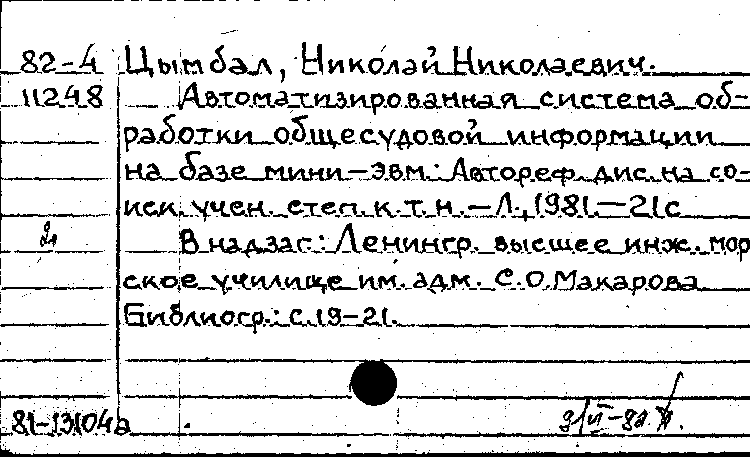 82-4 Цымбал, Николай Николаевич.
11248 Автоматизированная система об-
работки общесудовой информации
на базе мини-эвм: Автореф. дис. на со-
иск. учен. степ. к.т.н. - Л., 1981. - 21 с
В надзаг: Ленингр. высшее инж. мор
ское училище им. адм. С.О. Макарова
Библиогр.: с. 19-21.
81-13104а